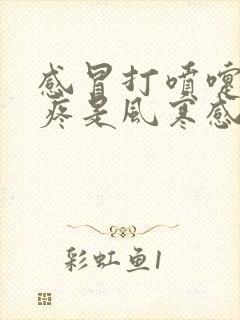 感冒打噴嚏
疼是風寒感
彩虹鱼1